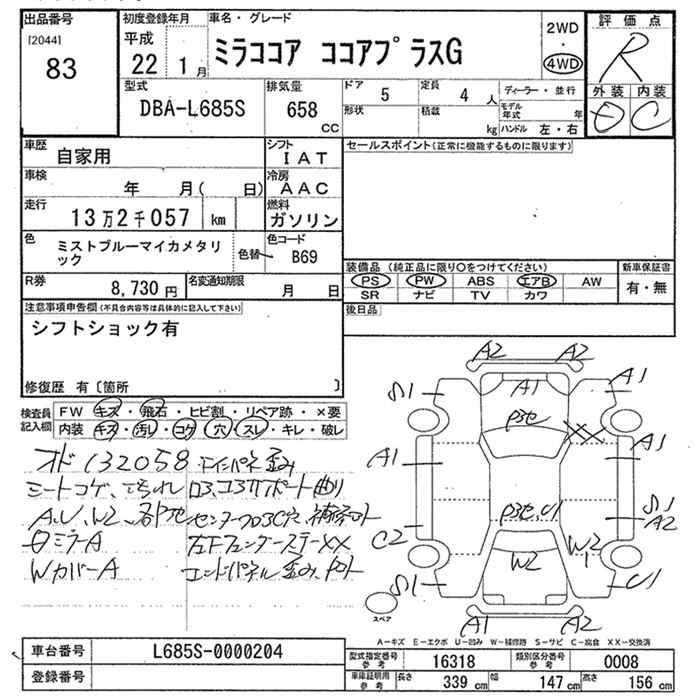 出品番号
[2044]
83
初度登録年月
平成
22 1月
車名・グレード
ミラココア ココアプラスG
2WD
・
4WD
評価点
R
型式
DBA-L685S
排気量
658
cc
ドア
5
定員
4 人
形状
積載
kg
ディーラー・並行
モデル年式 年
ハンドル 左・右
外装 内装
C
車歴
自家用
シフト
IAT
車検
年 月( 日)
冷房
AAC
走行
13万2千057 km
燃料
ガソリン
色
ミストブルーマイカメタリック
色替
色コード
B69
R券
8,730 円
名変通知期限
月 日
セールスポイント(正常に機能するものに限ります)
装備品 (純正品に限り○をつけてください)
PS PW ABS エアB AW
SR ナビ TV カワ
新車保証書
有・無
後日品
注意事項申告欄(不具合内容等は具体的に記入して下さい)
シフトショック有
修復歴 有〔箇所 〕
検査員記入欄
FW キズ・飛石・ヒビ割・リペア跡・×要
内装 キズ・汚レ・コゲ・穴・スレ・キレ・破レ
オド132058
シートコゲ、ヨゴレ
A,U,W2
ミラーA
WカバーA
A2 A2
S1 A1 A1
XX
A1 A1
S1
A2
C2 W2 W2
S1 U1
A1 A2
スペア
A-キズ E-エクボ U-凹み W-補修跡 S-サビ C-腐食 XX-交換済
車台番号
L685S-0000204
登録番号
型式指定番号 参考
16318
類別区分番号 参考
0008
車庫証明用 参考
長さ 339 cm
幅 147 cm
高さ 156 cm